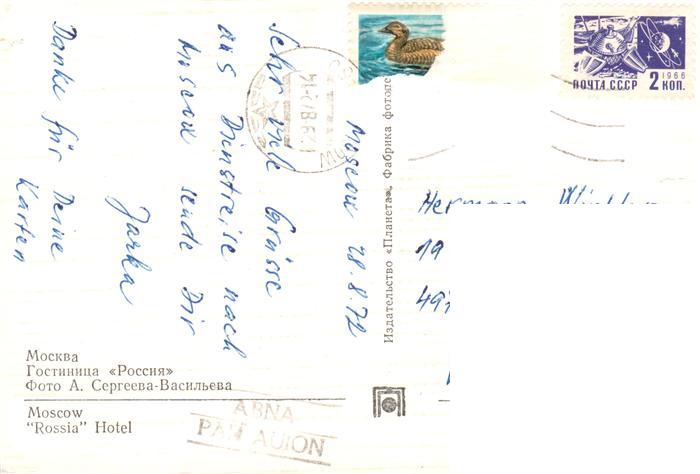 Moscow 28.8.72
Sehr viele Grüsse
aus Dinstreise nach
Moscow sende Dir
Jarka
Danke für Deine
Karten
Москва
Гостиница «Россия»
Фото А. Сергеева-Васильева
Moscow
"Rossia" Hotel
АВИА
PAR AVION
Издательство «Планета», Фабрика фотопе
1966
ПОЧТА СССР 2 КОП.
Hermann
19
49